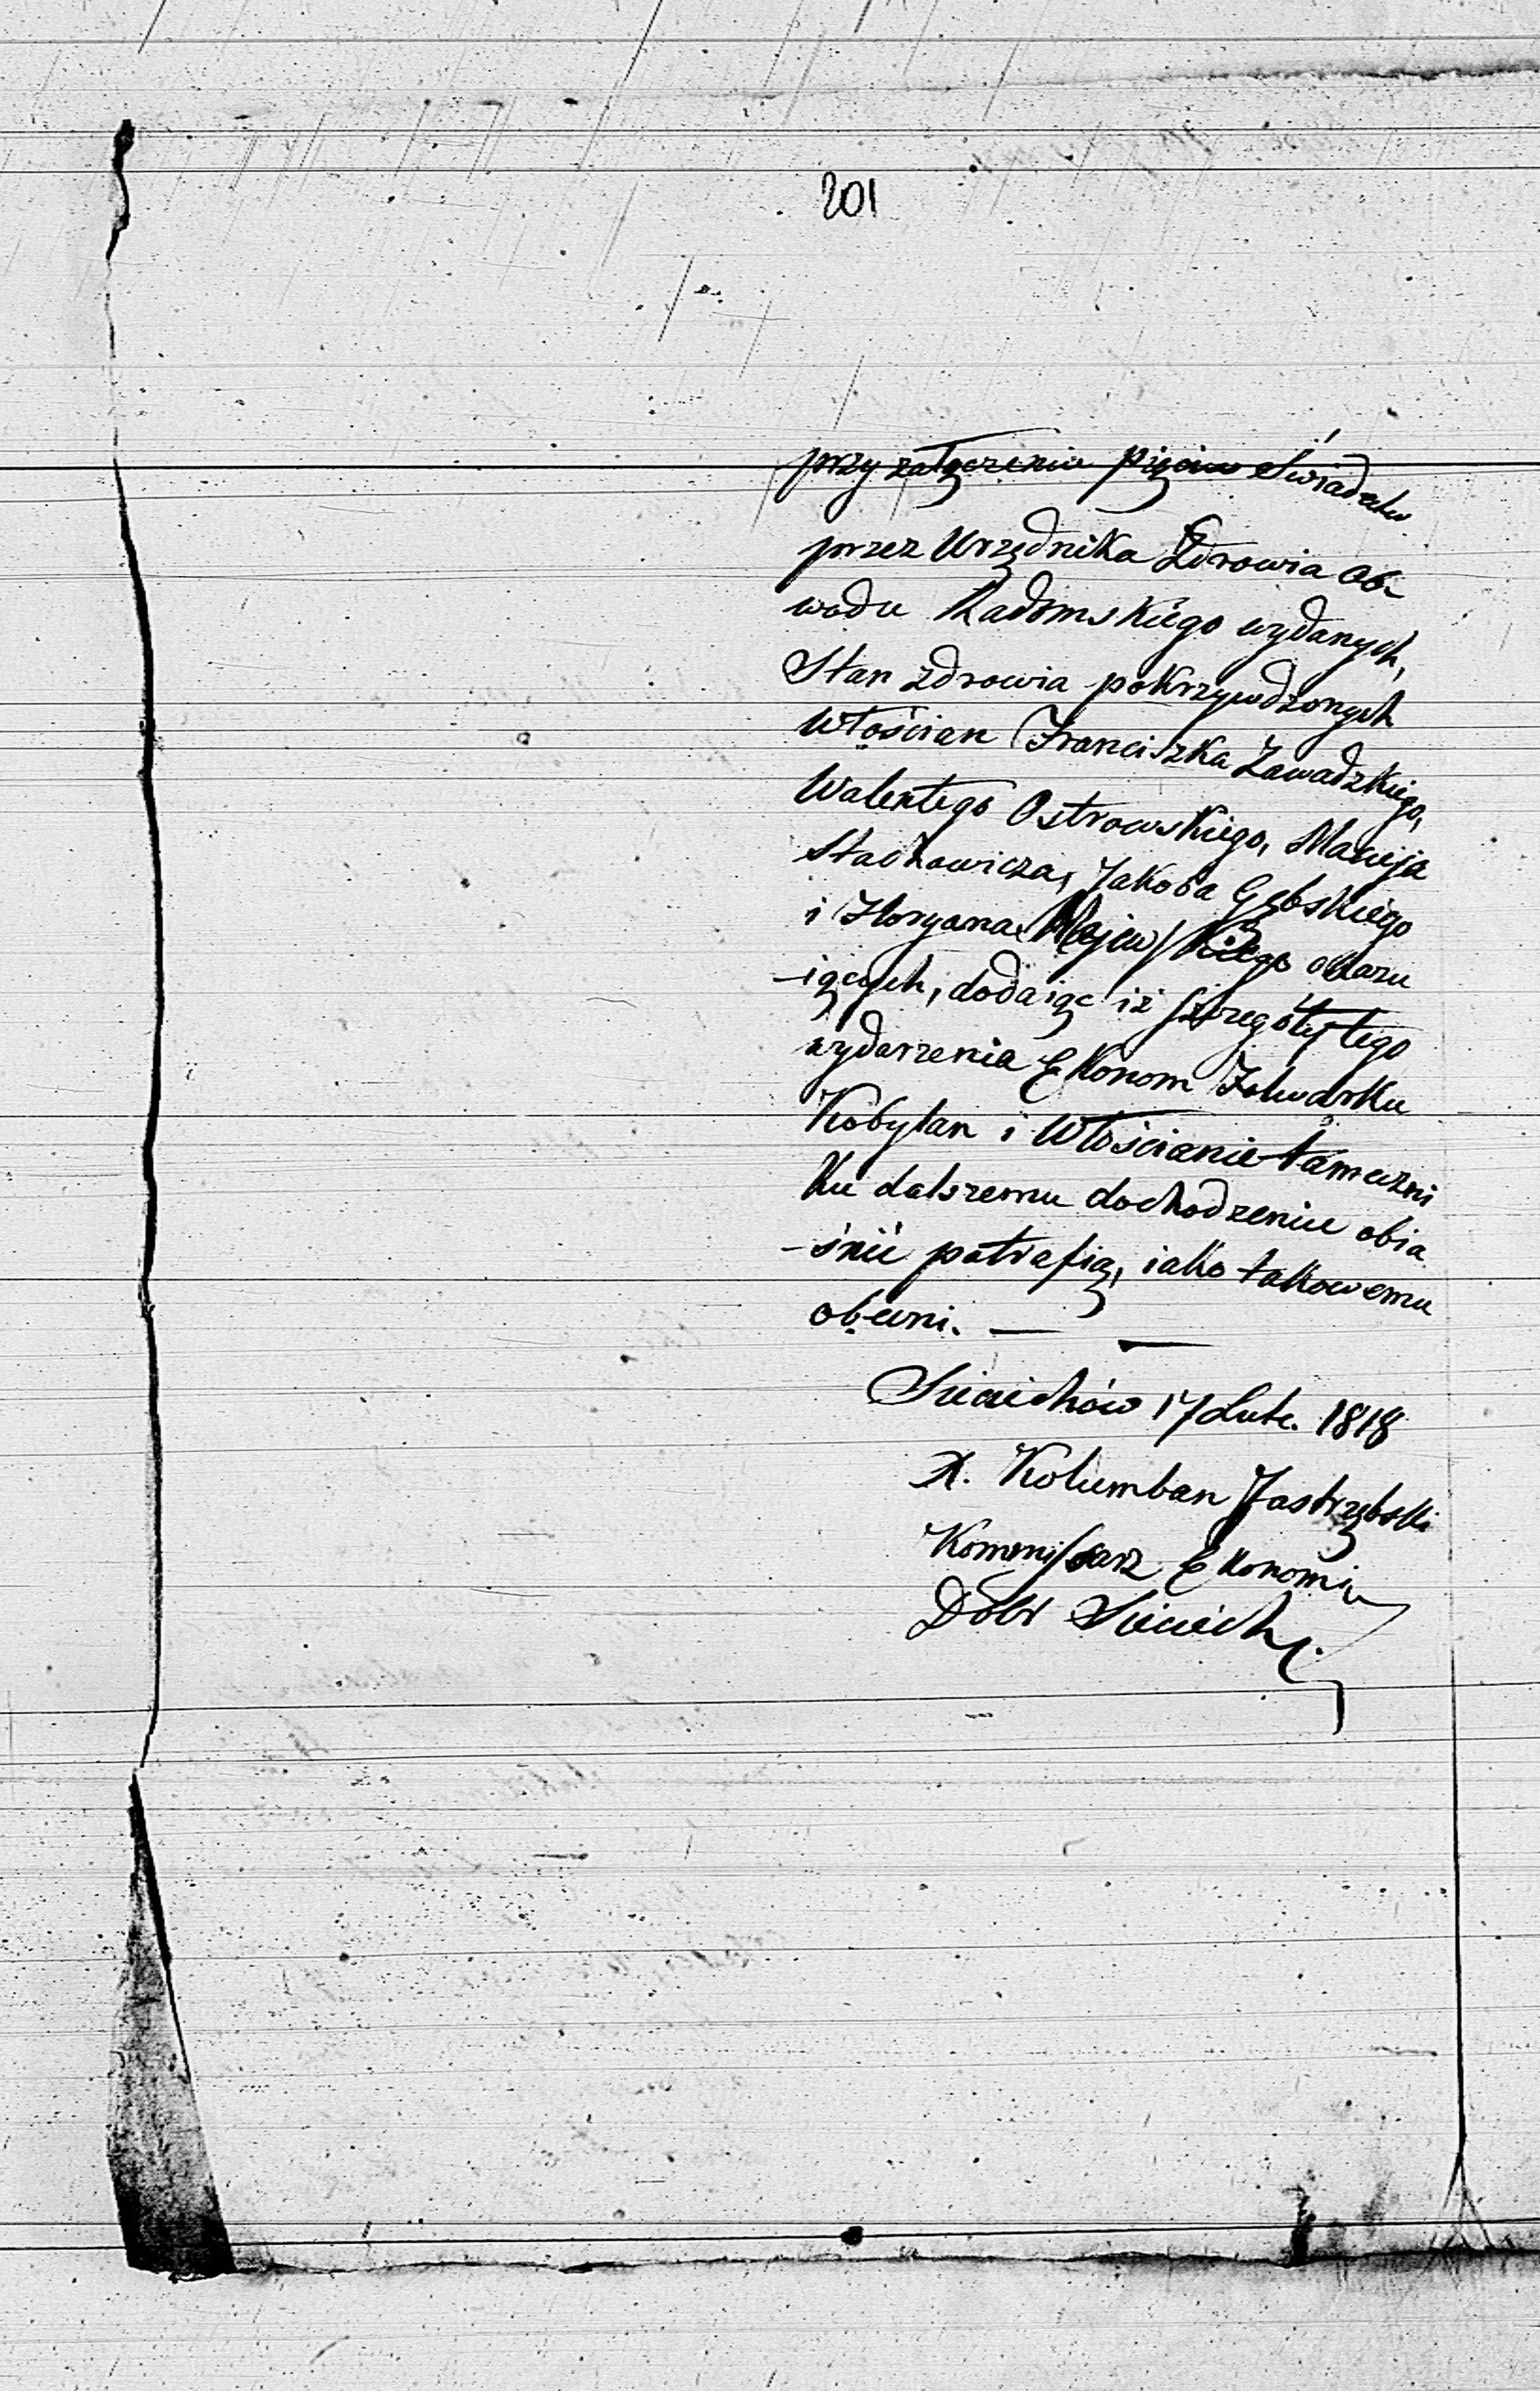 201
przy załączeniu pięciu Świadectw
przez Urzędnika Zdrowia Ob-
wodu Radomskiego wydanych,
Stan zdrowia pokrzywdzonych
Włościan Franciszka Zawadzkiego,
Walentego Ostrowskiego, Macieja
Stachowicza, Jakóba Gębskiego
i Floryana Majewskiego okazu
-iących, dodaiąc iż szczegóły tego
wydarzenia Ekonom Folwarku
Kobylan i Włościanie tameczni
Ku dalszemu dochodzeniu obia
-śnić potrafią, iako takowemu
obecni. — —
Sieciechów 17 Lute. 1818
X. Kolumban Jastrzębski
Kommissarz Ekonomi
Dóbr Sieciech.